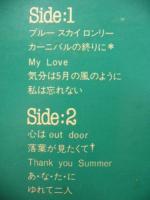 Side:1
ブルー スカイ ロンリー
カーニバルの終りに*
My Love
気分は5月の風のように
私は忘れない
Side:2
心は out door
落葉が見たくて†
Thank you Summer
あ・な・た・に
ゆれて二人